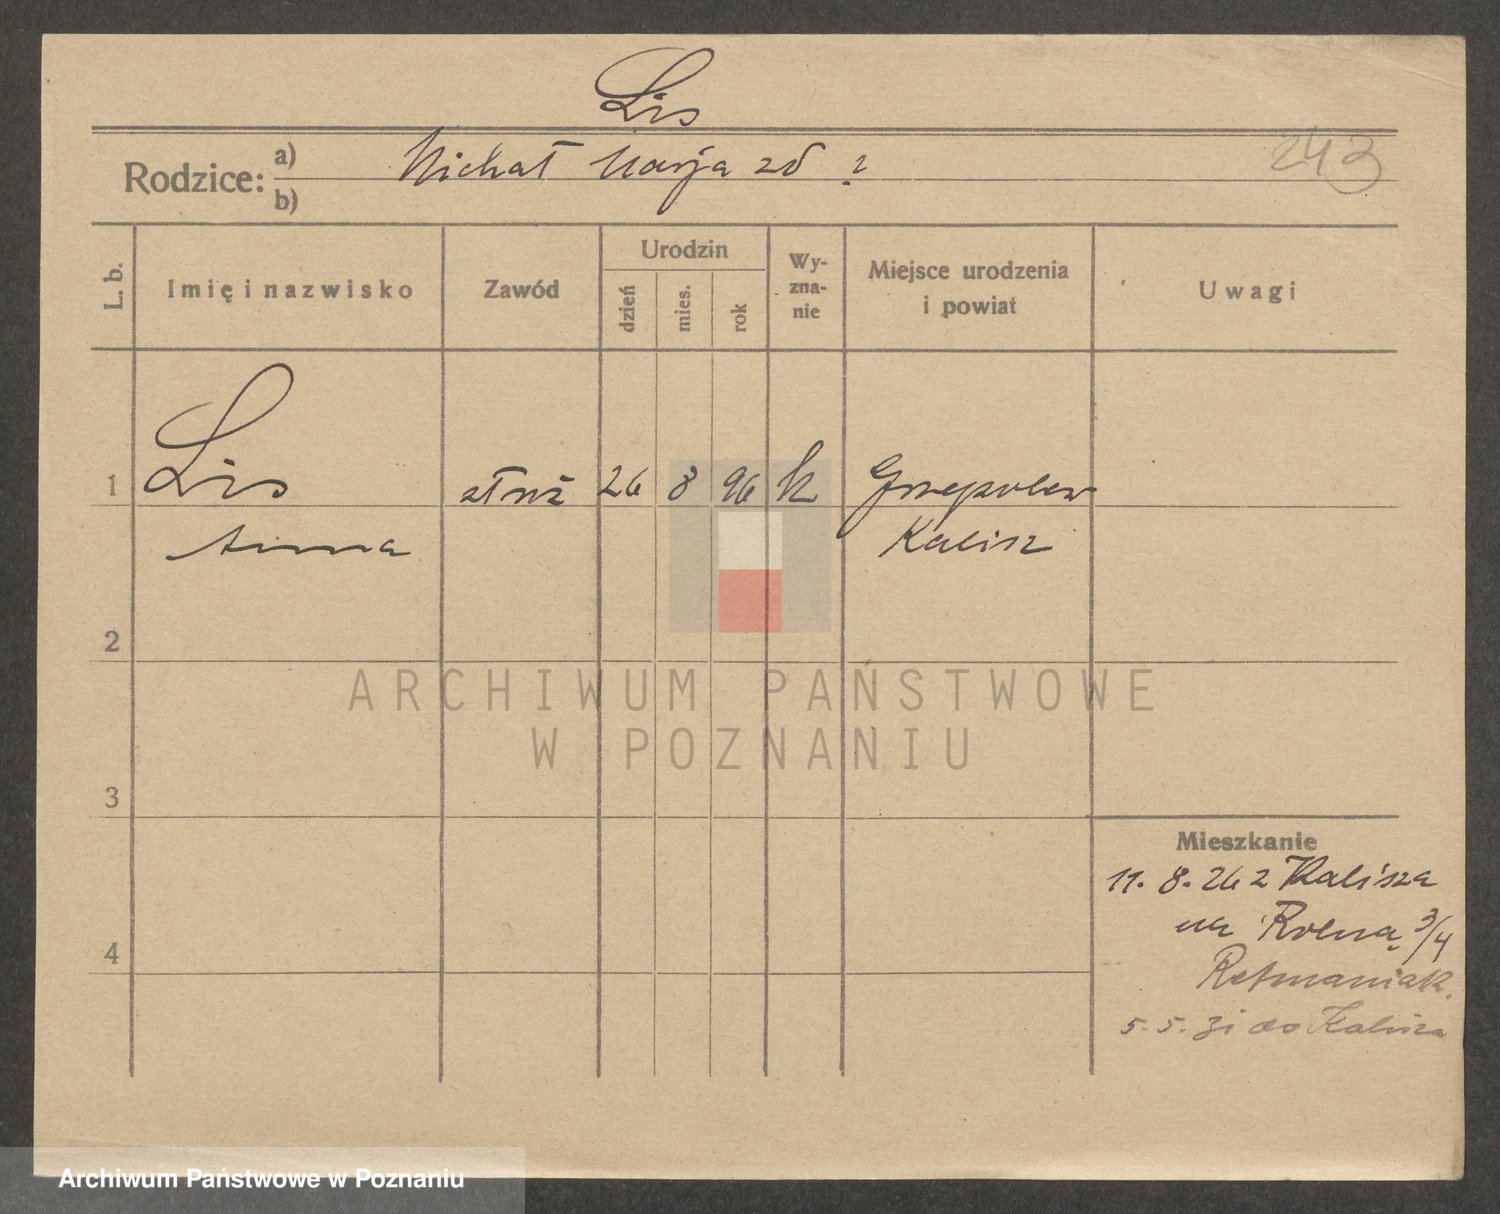 Lis
243
Rodzice: a) Michał Marja zd ?
b)
L. b. Imię i nazwisko Zawód Urodzin dzień mies. rok Wyznanie Miejsce urodzenia i powiat Uwagi
1 Lis służ 26 8 96 k
Anna Kalisz
2
ARCHIWUM PAŃSTWOWE
W POZNANIU
3
Mieszkanie
11. 8. 26 z Kalisza
na Rolną 3/4
Retmaniak.
4
5. 5. 31 do Kalisza
Archiwum Państwowe w Poznaniu